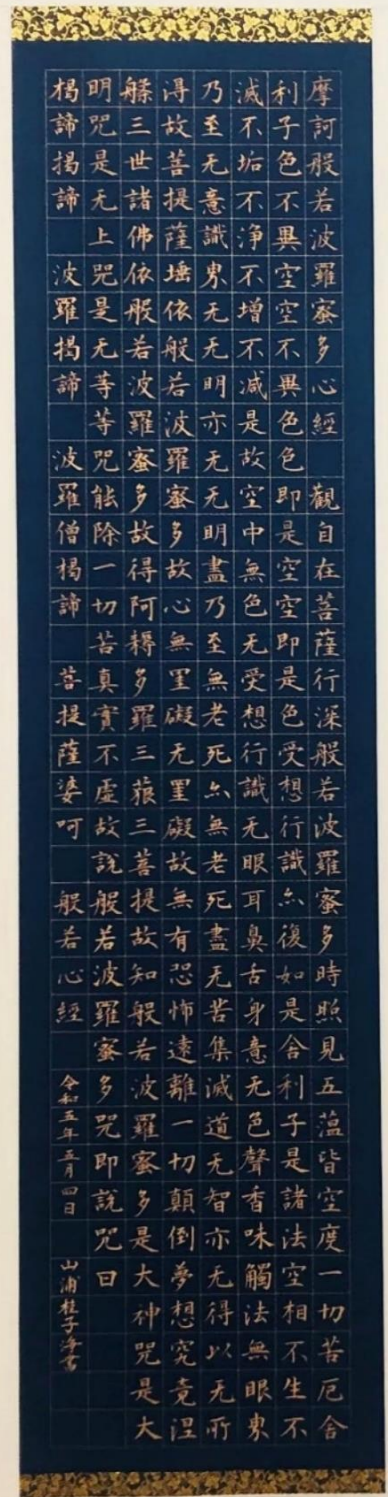 摩訶般若波羅蜜多心經　觀自在菩薩行深般若波羅蜜多時照見五蘊皆空度一切苦厄舍
利子色不異空空不異色色即是空空即是色受想行識亦復如是舍利子是諸法空相不生不
滅不垢不淨不增不減是故空中無色无受想行識无眼耳鼻舌身意无色聲香味觸法無眼界
乃至无意識界无无明亦无无明盡乃至無老死亦無老死盡无苦集滅道无智亦无得以无所
得故菩提薩埵依般若波羅蜜多故心無罣礙无罣礙故無有恐怖遠離一切顛倒夢想究竟涅
槃三世諸佛依般若波羅蜜多故得阿耨多羅三藐三菩提故知般若波羅蜜多是大神咒是大
明咒是无上咒是无等等咒能除一切苦真實不虛故說般若波羅蜜多咒即說咒曰
揭諦揭諦　波羅揭諦　波羅僧揭諦　菩提薩婆呵　般若心經　令和五年五月四日　山浦桂子浄書